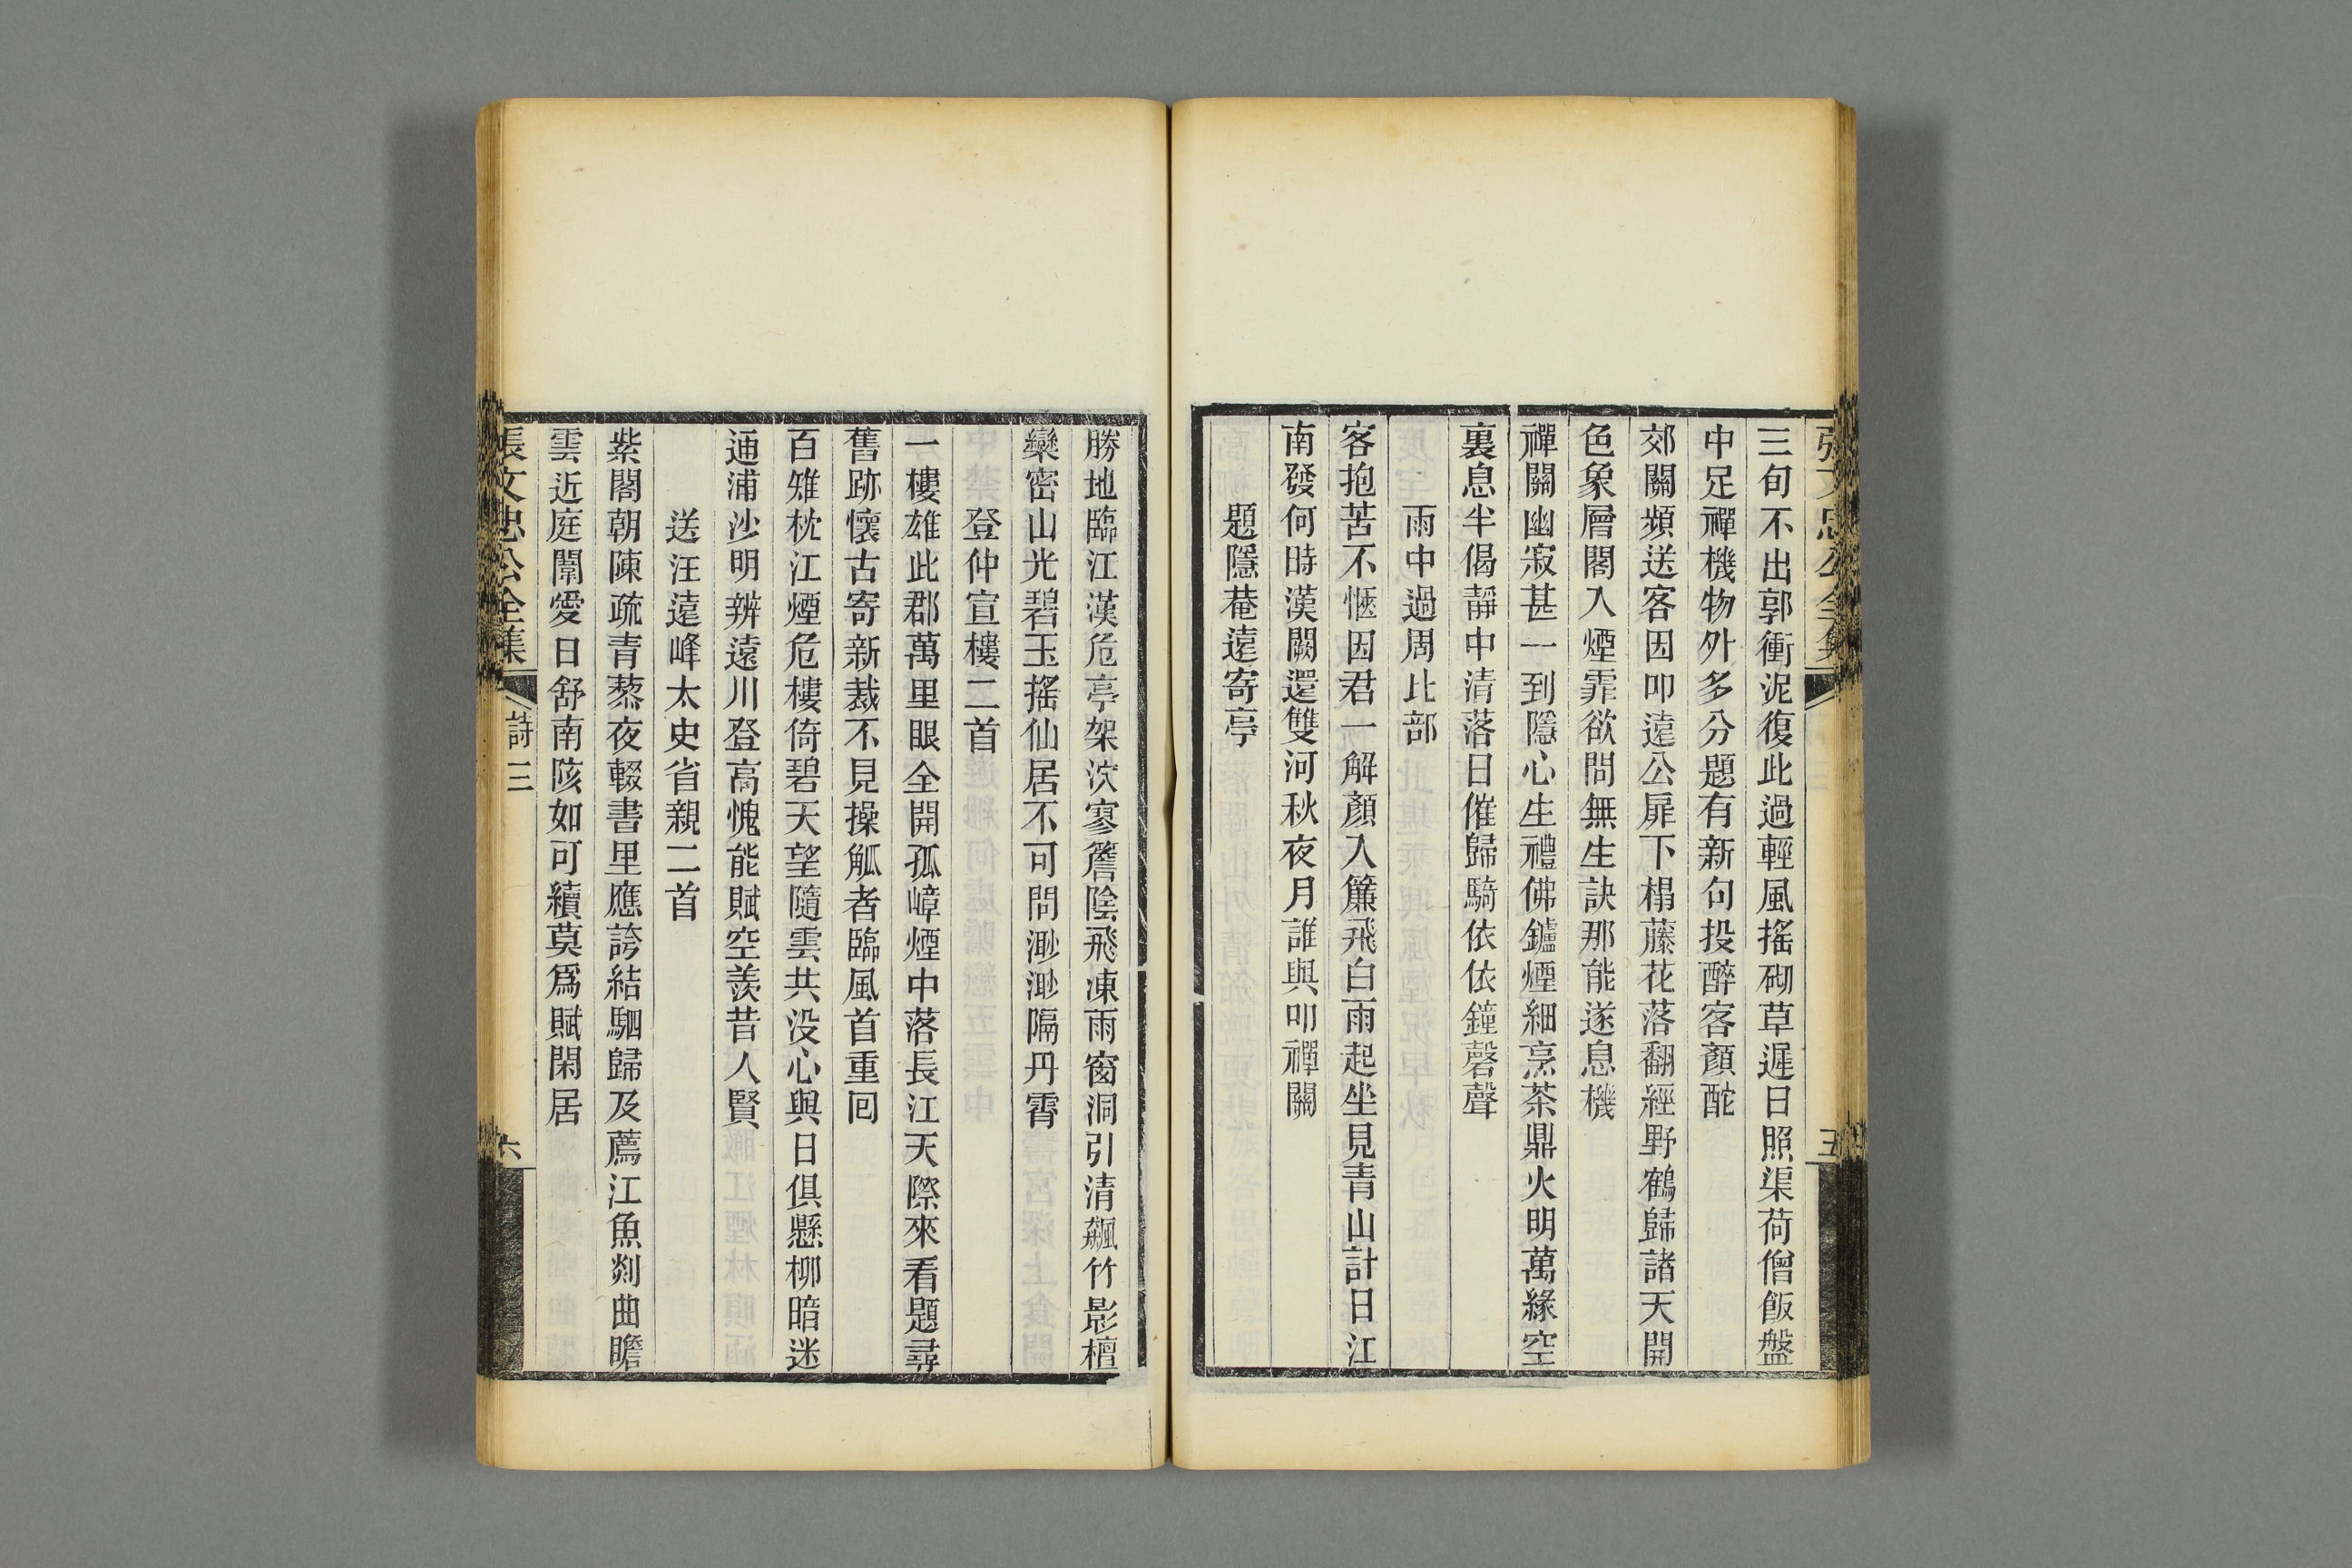 張文忠公全集
五
三旬不出郭衝泥復此過輕風搖砌草遲日照渠荷僧飯盤
中足禪機物外多分題有新句投醉客顏酡
郊關頻送客因叩遠公扉下榻藤花落翻經野鶴歸諸天開
色象層閣入煙霏欲問無生訣那能遂息機
禪關幽寂甚一到隱心生禮佛鑪煙細烹茶鼎火明萬緣空
裏息半偈靜中清落日催歸騎依依鐘磬聲
雨中過周比部
客抱苦不愜因君一解顏入簾飛白雨起坐見青山計日江
南發何時漢闕還雙河秋夜月誰與叩禪關
題隱菴遠寄亭
勝地臨江漢危亭架泬寥簷陰飛凍雨窗洞引清飆竹影檀
欒密山光碧玉搖仙居不可問渺渺隔丹霄
登仲宣樓二首
一樓雄此郡萬里眼全開孤嶂煙中落長江天際來看題尋
舊跡懷古寄新裁不見操觚者臨風首重回
百雉枕江煙危樓倚碧天望隨雲共沒心與日俱懸柳暗迷
通浦沙明辨遠川登高愧能賦空羨昔人賢
送汪遠峰太史省親二首
紫閣朝陳疏青藜夜輟書里應誇結駟歸及薦江魚剡曲瞻
雲近庭闈愛日舒南陔如可續莫爲賦閑居
張文忠公全集
詩三
六